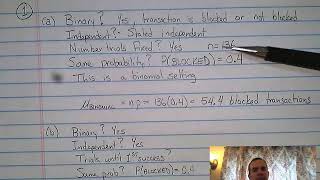 1
(a) Binary? Yes, transaction is blocked or not blocked
Independent? - Stated independent
Number trials Fixed? Yes n=136
Same probability? P(BLOCKED)=0.4
- This is a binomial setting
μ BINOMIAL = np = 136(0.4) = 54.4 blocked transactions
(b) Binary? Yes
Independent? Yes
Trials until 1st success?
Same prob? P(BLOCKED)=0.4